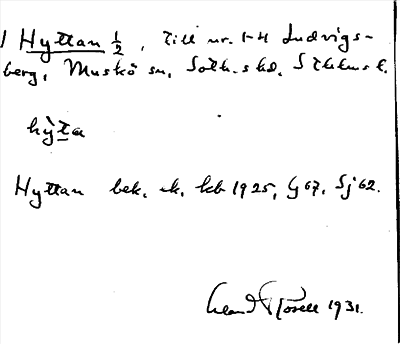 1 Hyttan ½, till nr. 1-4 Ludvigs-
berg, Muskö sn, Soth. skd, Sthlms l.
hỳta
Hyttan bek. ek. kb 1925, G 67. Sj 62.
1931.